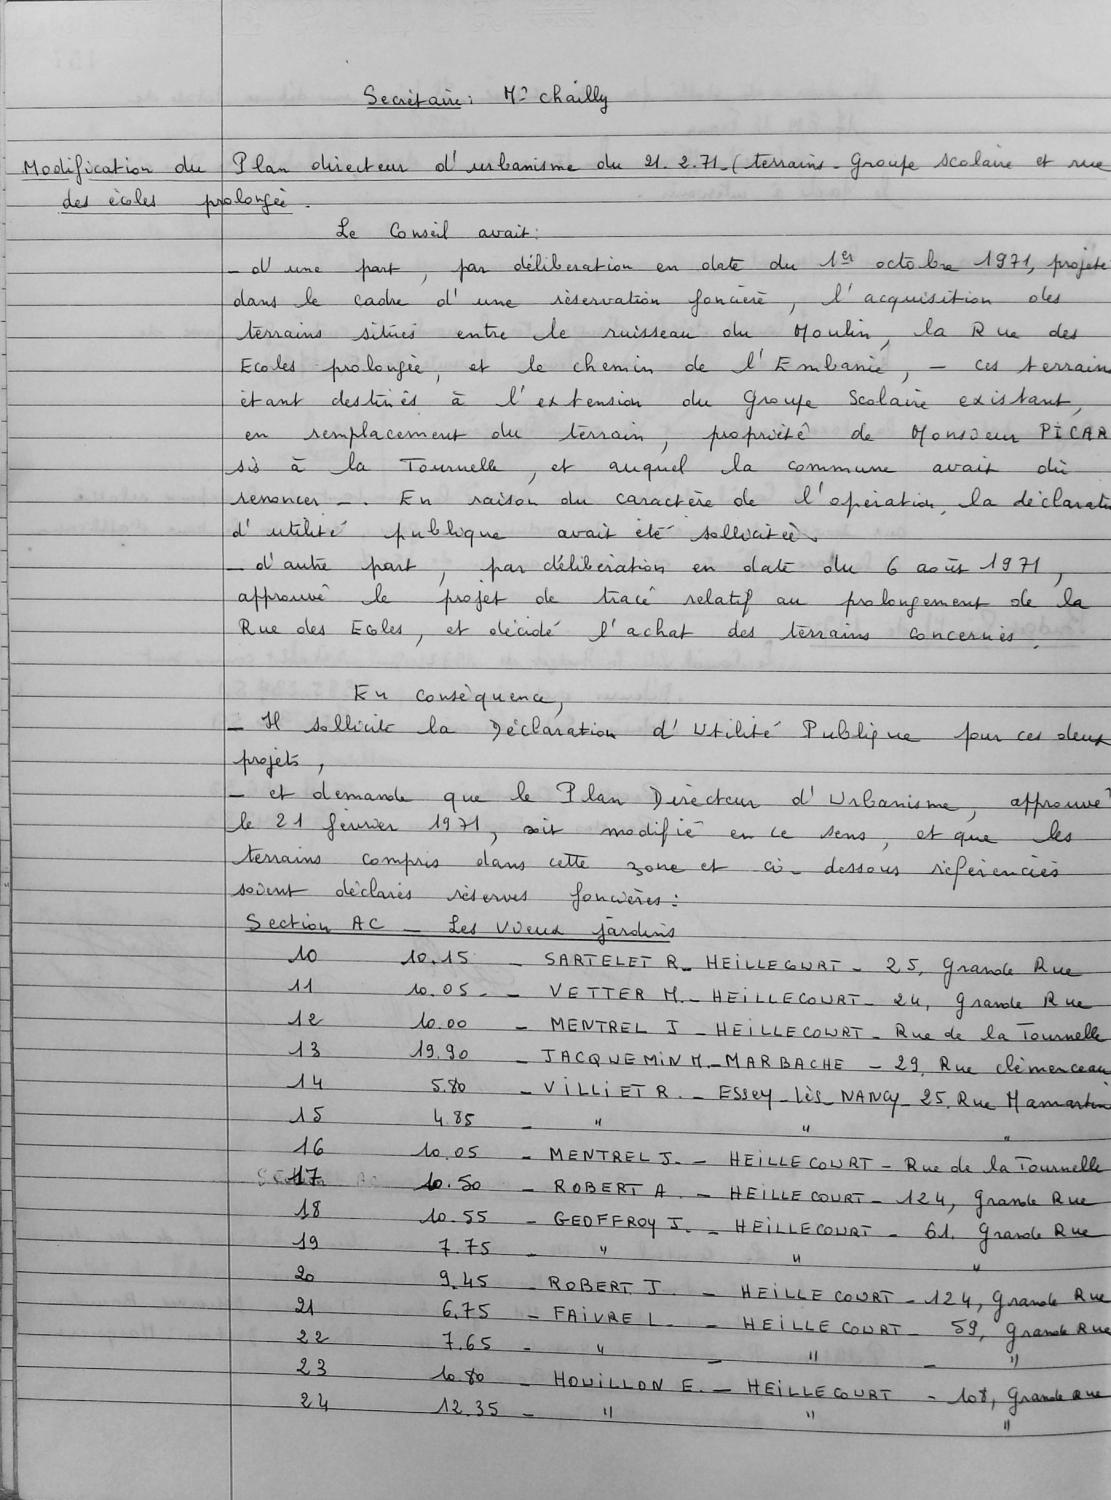 Secrétaire : Mr Chailly
Modification du Plan directeur d'urbanisme du 21.2.71 (terrains - Groupe scolaire et rue
des écoles prolongée.
Le Conseil avait :
- d'une part, par délibération en date du 1er octobre 1971, projeté
dans le cadre d'une réservation foncière, l'acquisition des
terrains situés entre le ruisseau du Moulin, la Rue des
Ecoles prolongée, et le chemin de l'Embanie, - ces terrain
étant destinés à l'extension du Groupe Scolaire existant,
en remplacement du terrain, propriété de Monsieur PICAR
sis à la Tournelle, et auquel la commune avait dû
renoncer -. En raison du caractère de l'opération, la déclarati
d'utilité publique avait été sollicitée.
- d'autre part, par délibération en date du 6 août 1971,
approuvé le projet de tracé relatif au prolongement de la
Rue des Ecoles, et décidé l'achat des terrains concernés.
En conséquence,
- Il sollicite la Déclaration d'Utilité Publique pour ces deux
projets,
- et demande que le Plan Directeur d'Urbanisme, approuvé
le 21 février 1971, soit modifié en ce sens, et que les
terrains compris dans cette zone et ci-dessous référenciés
soient déclarés réserves foncières :
Section AC - Les Vieux jardins
10 10.15 - SARTELET R - HEILLECOURT - 25, Grande Rue
11 10.05 - VETTER M. - HEILLECOURT - 24, Grande Rue
12 10.00 - MENTREL J - HEILLECOURT - Rue de la Tournelle
13 19.90 - JACQUEMIN M. - MARBACHE - 29, Rue Clémenceau
14 5.80 - VILLIET R. - Essey-lès-NANCY - 25, Rue Mamartin
15 4.85 - " " "
16 10.05 - MENTREL J. - HEILLECOURT - Rue de la Tournelle
17 10.50 - ROBERT A. - HEILLECOURT - 124, Grande Rue
18 10.55 - GEOFFROY J. - HEILLECOURT - 61, Grande Rue
19 7.75 - " " "
20 9.45 - ROBERT J. - HEILLECOURT - 124, Grande Rue
21 6.75 - FAIVRE L. - HEILLECOURT - 59, Grande Rue
22 7.65 - " - " - "
23 10.80 - HOUILLON E. - HEILLECOURT - 108, Grande Rue
24 12.35 - " " "